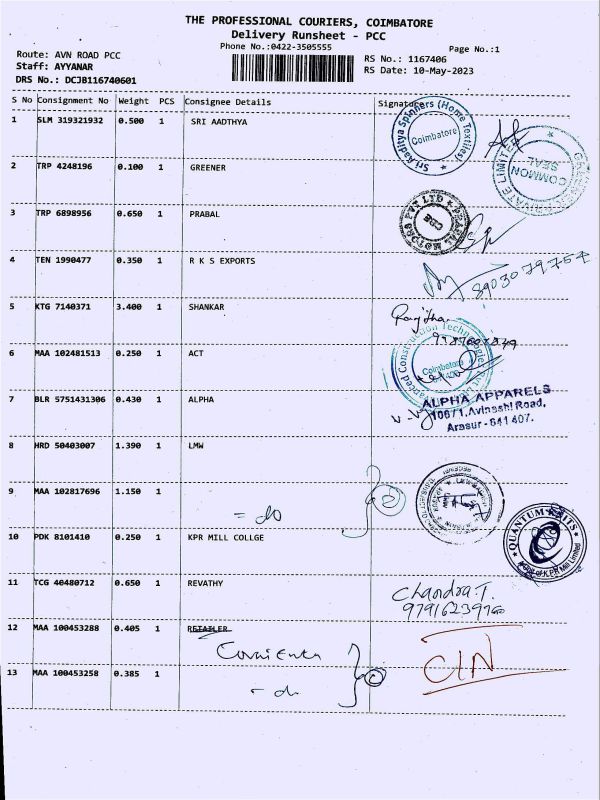 THE PROFESSIONAL COURIERS, COIMBATORE
Delivery Runsheet - PCC
Phone No.:0422-3505555
Page No.:1
Route: AVN ROAD PCC
RS No.: 1167406
Staff: AYYANAR
RS Date: 10-May-2023
DRS No.: DCJB116740601
S No Consignment No Weight PCS Consignee Details Signature
1 SLM 319321932 0.500 1 SRI AADTHYA
Sri Aaditya Spinners (Home Textiles)
Coimbatore
PRIVATE LIMITED
COMMON SEAL
2 TRP 4248196 0.100 1 GREENER
3 TRP 6898956 0.650 1 PRABAL
PRABAL MOTORS PVT LTD
CBE
4 TEN 1990477 0.350 1 R K S EXPORTS
8903079754
5 KTG 7140371 3.400 1 SHANKAR
6 MAA 102481513 0.250 1 ACT
Advanced Construction Technologies
Coimbatore
7 BLR 5751431306 0.430 1 ALPHA
ALPHA APPARELS
106/1, Avinashi Road,
Arasur - 641 407.
8 HRD 50403007 1.390 1 LMW
9 MAA 102817696 1.150 1
= do
10 PDK 8101410 0.250 1 KPR MILL COLLGE
QUANTUM KNITS
A Unit of K.P.R Mill Limited
11 TCG 40480712 0.650 1 REVATHY
Chandra.T.
12 MAA 100453288 0.405 1 RETAILER
CIN
13 MAA 100453258 0.385 1
- do